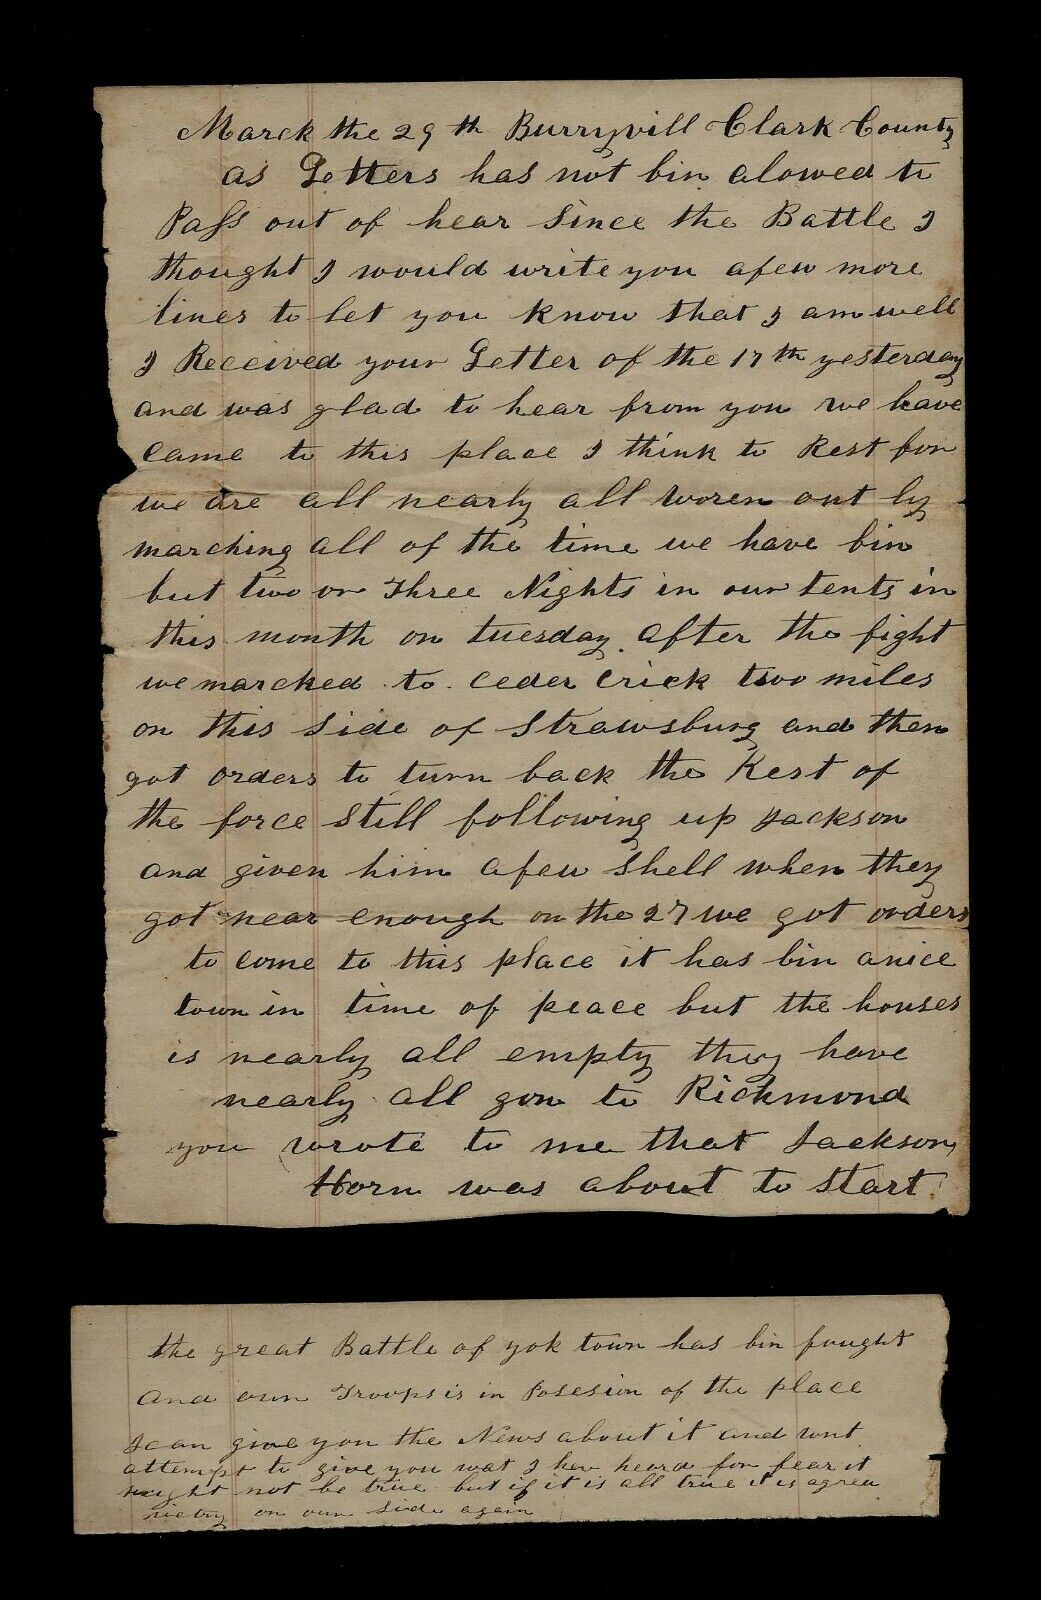 March the 29th Burryvill Clark County
as Letters has not bin alowed to
Pass out of hear Since the Battle I
thought I would write you afew more
lines to let you know that I am well
I Received your Letter of the 17th yesterday
and was glad to hear from you we have
came to this place I think to Rest for
we are all nearly all woren out by
marching all of the time we have bin
but two or Three Nights in our tents in
this month on tuesday after the fight
we marched to Ceder Crick two miles
on this Side of Strawsburg and then
got orders to turn back the Rest of
the force Still following up Jackson
and given him afew Shell when they
got near enough on the 27 we got orders
to come to this place it has bin anice
town in time of peace but the houses
is nearly all empty they have
nearly all gon to Richmond
you wrote to me that Jackson
Horn was about to Start
the great Battle of yok town has bin fought
and our Troops is in Posesion of the place
I can give you the News about it and wont
attempt to give you wat I hev heard for fear it
might not be true but if it is all true it is agrea
victry on our Side again